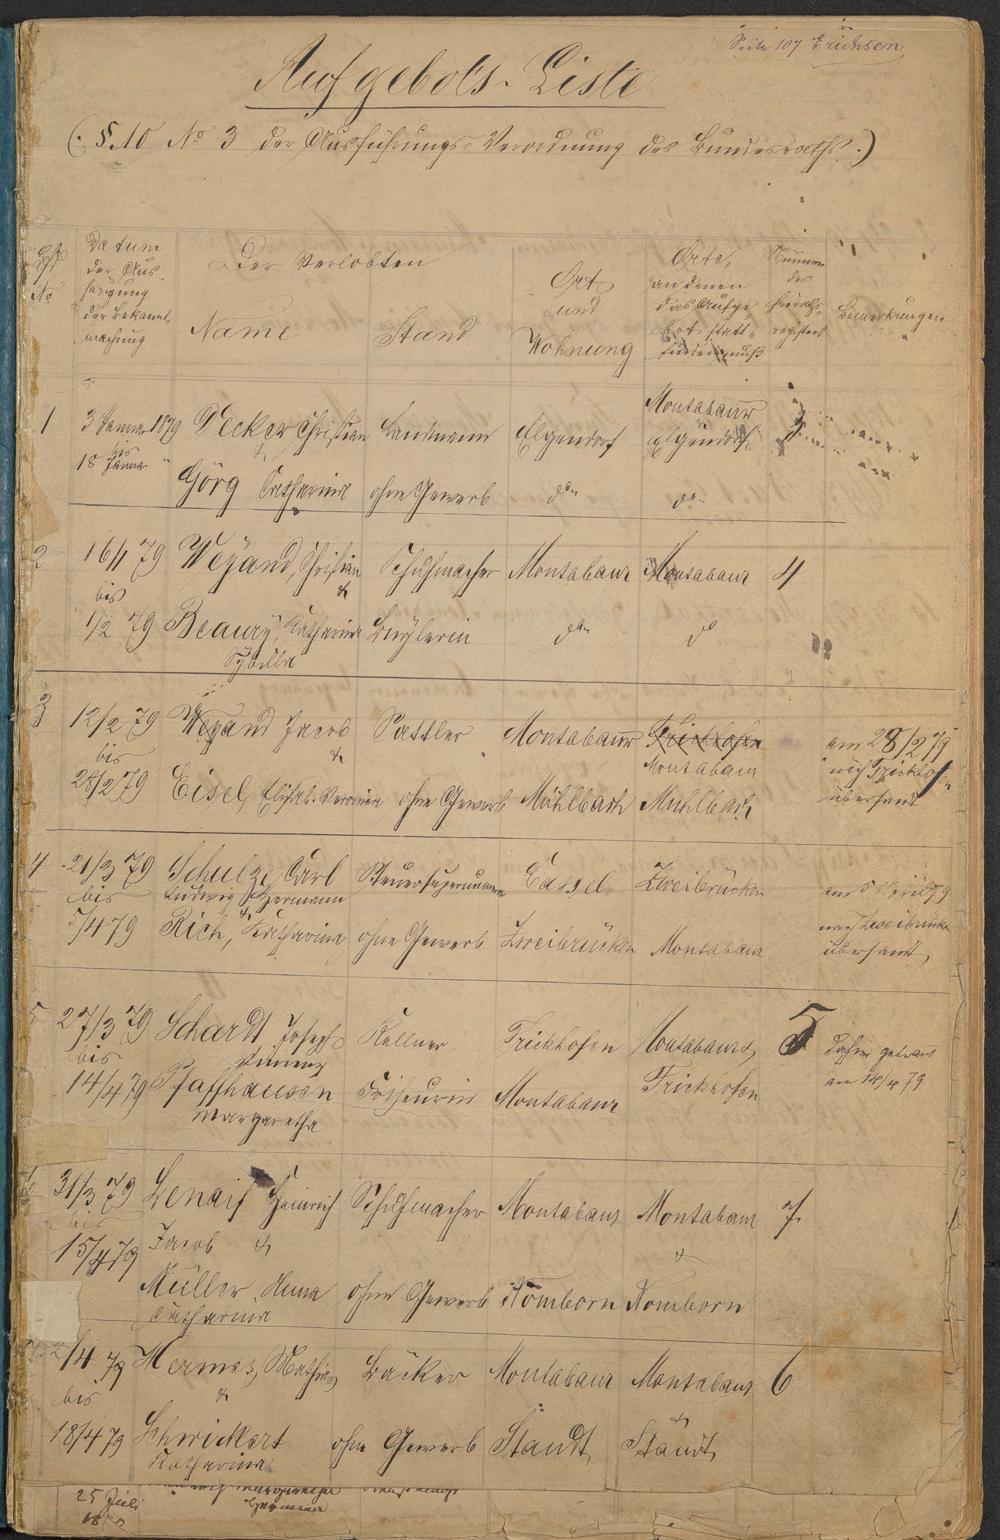 Seite 107 Erichsen
Aufgebots-Liste
(§. 10 No 3 der Ausführungs-Verordnung des Bundesraths.)
No
Datum
der Aus-
hängung
der Bekannt-
machung
Der Verlobten
Name
Stand
Ort
und
Wohnung
Orte,
an denen
das Aufge-
bot statt-
finden muß
Nummer
des
Heiraths-
registers
Bemerkungen
1 3 Januar 1879 Decker Christian Landmann Elgendorf Montabaur
Elgendorf
bis
18 Januar " Görg Catharina ohne Gewerb do do
2 16/1 79 Weyand, Christian Schuhmacher Montabaur Montabaur 4
bis &
1/2 79 Beaury, Katharina Büglerin do do
Sybilla
3 12/2 79 Weyand Jacob Sattler Montabaur Frickhofen am 28/2 79
bis & Montabaur nach Frickhofen
28/2 79 Eisel, Elisab. Veronica ohne Gewerb Mühlbach Mühlbach übersandt
4 21/3 79 Schulze, Carl Steuersupernumerar Cassel Zweibrücken am 5 April 79
bis Ludwig Hermann nach Zweibrücken
5/4 79 Rich, Katharina ohne Gewerb Zweibrücken Montabaur übersandt
5 27/3 79 Schardt Joseph Kellner Frickhofen Montabaur & 5
bis
14/4 79 Pfaffhausen Friseurin Montabaur Frickhofen am 14/4 79
Margaretha
31/3 79 Lenaif Heinrich Schuhmacher Montabaur Montabaur 7.
bis
15/4 79 Jacob & &
Müller, Anna ohne Gewerb Nomborn Nomborn
Catharina
2/4 79 Hermes, Mathias Bäcker Montabaur Montabaur 6
bis & &
18/4 79 Schwickert ohne Gewerb Staudt Staudt
Katharina
25 Juli